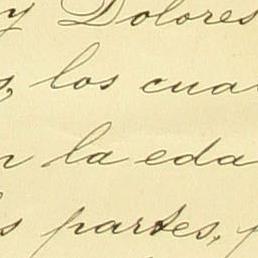 y Dolores
s, los cua
n la eda
s partes, p